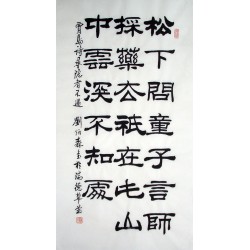 松下問童子言師
採藥去祇在此山
中雲深不知處
賈島詩尋隱者不遇 劉